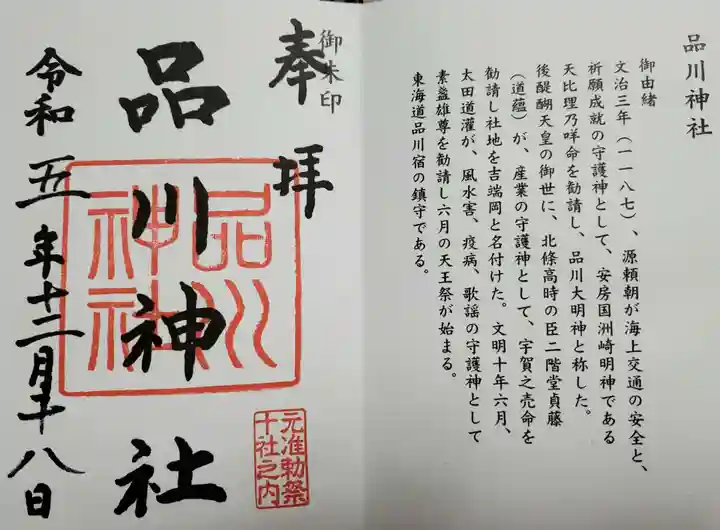 品川神社
御由緒
文治三年（一一八七）、源頼朝が海上交通の安全と、
祈願成就の守護神として、安房国洲崎明神である
天比理乃咩命を勧請し、品川大明神と称した。
後醍醐天皇の御世に、北條高時の臣二階堂貞藤
（道蘊）が、産業の守護神として、宇賀之売命を
勧請し社地を吉端岡と名付けた。文明十年六月、
太田道灌が、風水害、疫病、歌謡の守護神として
素盞雄尊を勧請し六月の天王祭が始まる。
東海道品川宿の鎮守である。
御朱印
奉拝
品川神社
品川
神社
元准勅祭
十社之内
令和五年十二月十八日